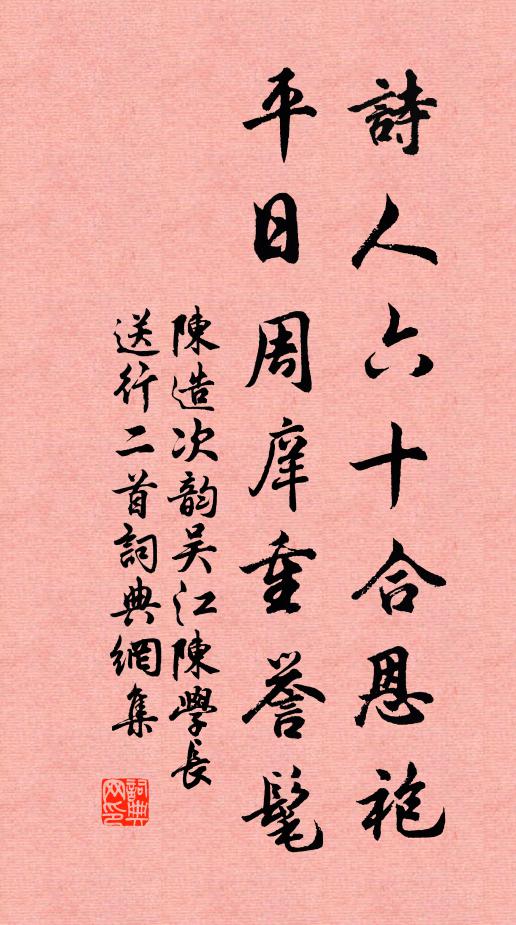 詩人六十合恩袍
平日周庠重譽髦
陳造次韵吴江陳學長
送行二首詞典網集
詞典
网印